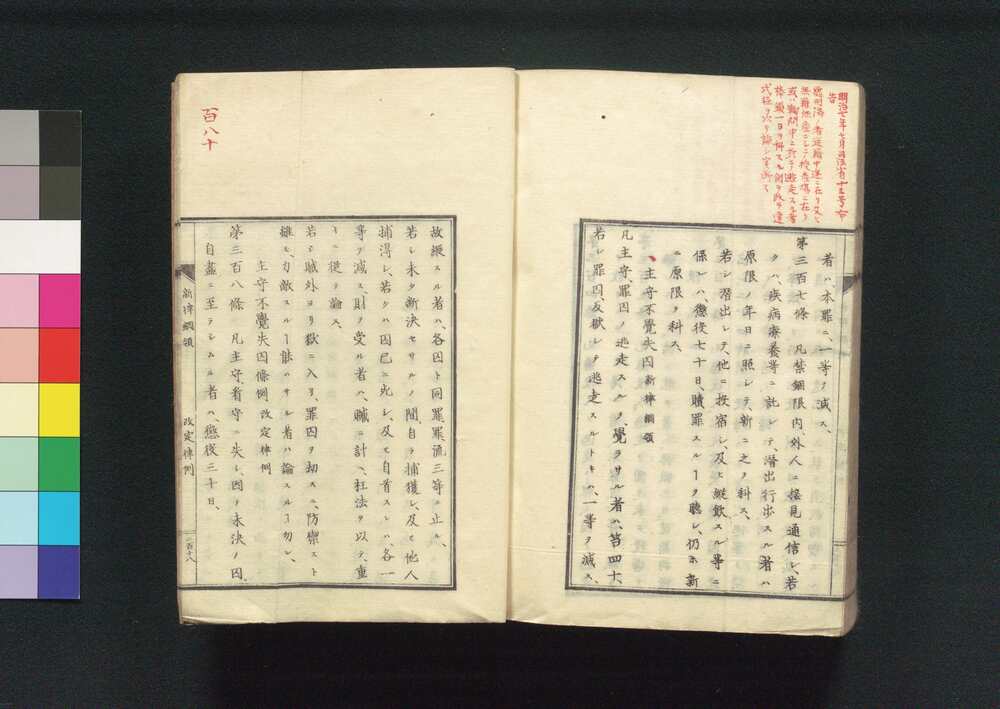 明治七年七月司法省十五号布
告
者ハ本罪ニ、一等ヲ減ス、
第三百七條　凡禁錮限內外人ニ接見通信シ、若
クハ、疾病療養等ニ託シテ、潜出行出スル者ハ
原限ノ年日ニ照シテ、新ニ之ヲ科ス、
若シ潜出シテ、他ニ投宿シ、及ヒ縱飮スル等ニ
係レハ、懲役七十日、贖罪スルヿヲ聽シ、仍ホ新
ニ原限ヲ科ス、
主守不覺失囚 新律綱領
凡主守、罪囚ノ逃走スルヲ、覺ラサル者ハ、笞四十、
若シ罪囚、反獄シテ逃走スルトキハ、一等ヲ減ス、
百八十
故縱スル者ハ、各囚ト同罪罪流三等ニ止ル、
若シ未タ斷決セサルノ間、自ラ捕獲シ、及ヒ他人
捕得シ、若クハ囚已ニ死シ、及ヒ自首スレハ、各一
等ヲ減ス、財ヲ受ル者ハ、贓ニ計ヘ、枉法ヲ以テ、重
キニ從テ論ス、
若シ賊外ヨリ獄ニ入リ、罪囚ヲ劫スニ、防禦スト
雖モ、力敵スルー能ハサル者ハ論スルヿ勿レ、
主守不覺失囚條例 改定律例
第三百八條　凡主守、看守ニ失シ、因テ未決ノ囚、
自盡ニ至ラシムル者ハ、懲役三十日、
新律綱領
改定律例
二百十八